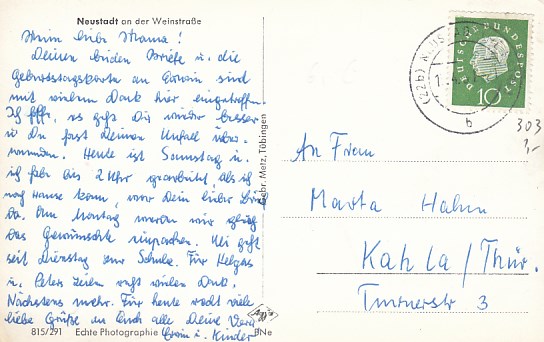 Neustadt an der Weinstraße
Meine liebe Mama!
Deinen beiden Briefe u. die
Geburtstagskarte an Erwin sind
mit vielem Dank hier eingetroffen.
Ich hoffe, es geht Dir wieder besser
u Du hast Deinen Unfall über-
wunden. Heute ist Samstag u.
ich habe bis 2 Uhr gearbeitet, als ich
nach Hause kam, war Dein lieber Brief
da. Am Montag werden wir gleich
das Gewünschte einpacken. Uli geht
seit Dienstag zur Schule. Für Helgas
u. Peters Zeilen recht vielen Dank.
Nächstens mehr. Für heute recht viele
liebe Grüße an Euch alle Deine Vera
Erwin u. Kinder
815/291 Echte Photographie BNe
Gebr. Metz, Tübingen
DEUTSCHE BUNDESPOST
10
(22b)
b
303
1,-
An Frau
Marta Hahn
Kahla / Thür.
Turnerstr 3